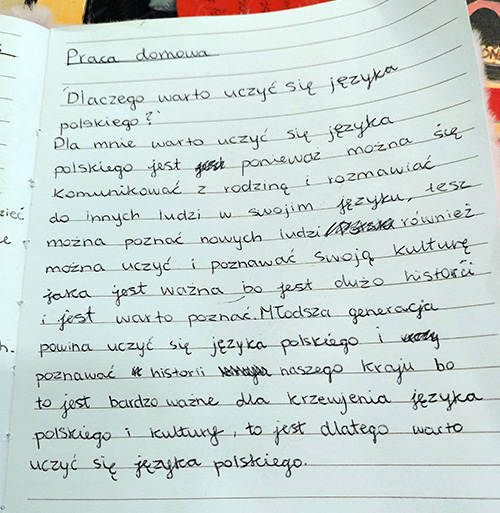 Praca domowa
"Dlaczego warto uczyć się języka
polskiego?"
Dla mnie warto uczyć się języka
polskiego jest ponieważ można się
komunikować z rodziną i rozmawiać
do innych ludzi w swojim języku, tesz
można poznać nowych ludzi również
można uczyć i poznawać swoją kulturę
jaka jest ważna bo jest dużo historii
i jest warto poznać. Młodsza generacja
powina uczyć się języka polskiego i
poznawać historii naszego kraju bo
to jest bardzo ważne dla krzewjenia języka
polskiego i kultury, to jest dlatego warto
uczyć się języka polskiego.
zieć
e
h.